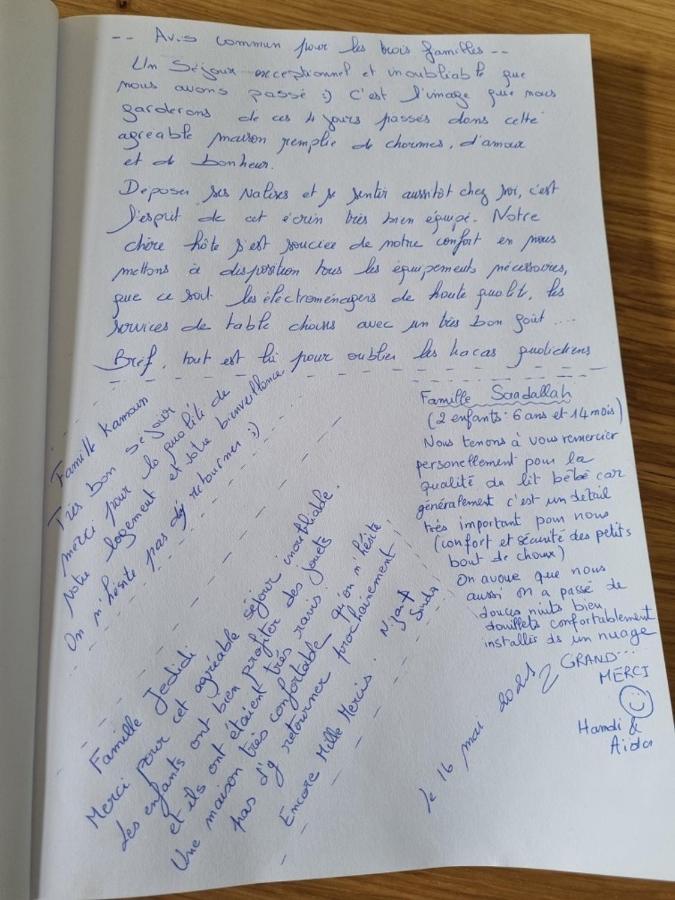 -- Avis commun pour les trois familles --
Un Séjour exceptionnel et inoubliable que
nous avons passé :) C'est l'image que nous
garderons de ces 4 jours passés dans cette
agréable maison remplie de charmes, d'amour
et de bonheur.
Deposer ses valises et se sentir aussitôt chez soi, c'est
l'esprit de cet écrin très bien équipé. Notre
chère hôte s'est souciée de notre confort en nous
mettons à disposition tous les équipements nécessaires,
que ce soit les électroménagers de haute qualité, les
services de table choisis avec un très bon goût ....
Bref, tout est là pour oublier les tracas quotidiens
Famille Kamoun
Très bon séjour
merci pour la qualité de
Notre logement et votre bienveillance
On n'hésite pas d'y retourner :)
Famille Jedidi
Merci pour cet agréable séjour inoubliable.
Les enfants ont bien profiter des jouets
et ils ont étaient très ravis.
Une maison très confortable qu'on n'hésite
pas d'y retourner prochainement !
Encore Mille Mercis.
Famille Saadallah
(2 enfants: 6 ans et 14 mois)
Nous tenons à vous remercier
personellement pour la
qualité du lit bébé car
généralement c'est un détail
très important pour nous
(confort et sécurité des petits
bout de choux)
On avoue que nous
aussi on a passé de
douces nuits bien
douillets confortablement
installés ds un nuage
GRAND...
MERCI
Hamdi &
Aida
le 16 mai 2021